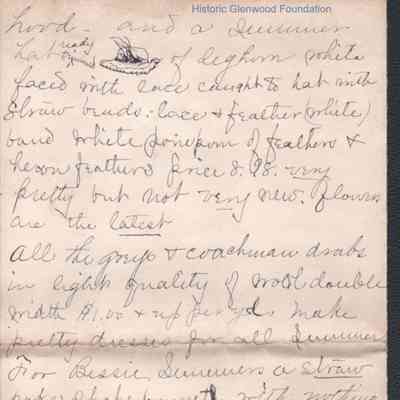 Historic Glenwood Foundation
hood - and a summer
hat ready of leghorn white
faced with lace caught to hat with
straw beads: lace & feather (white)
band white pompom of feathers &
heron feathers price 8.98. very
pretty but not very new. flowers
are the latest
All the greys & coachman drabs
in light quality of wool double
width $1.00 & up per yd. make
pretty dresses for all Summer
For Bessie Summers a straw
with nothing